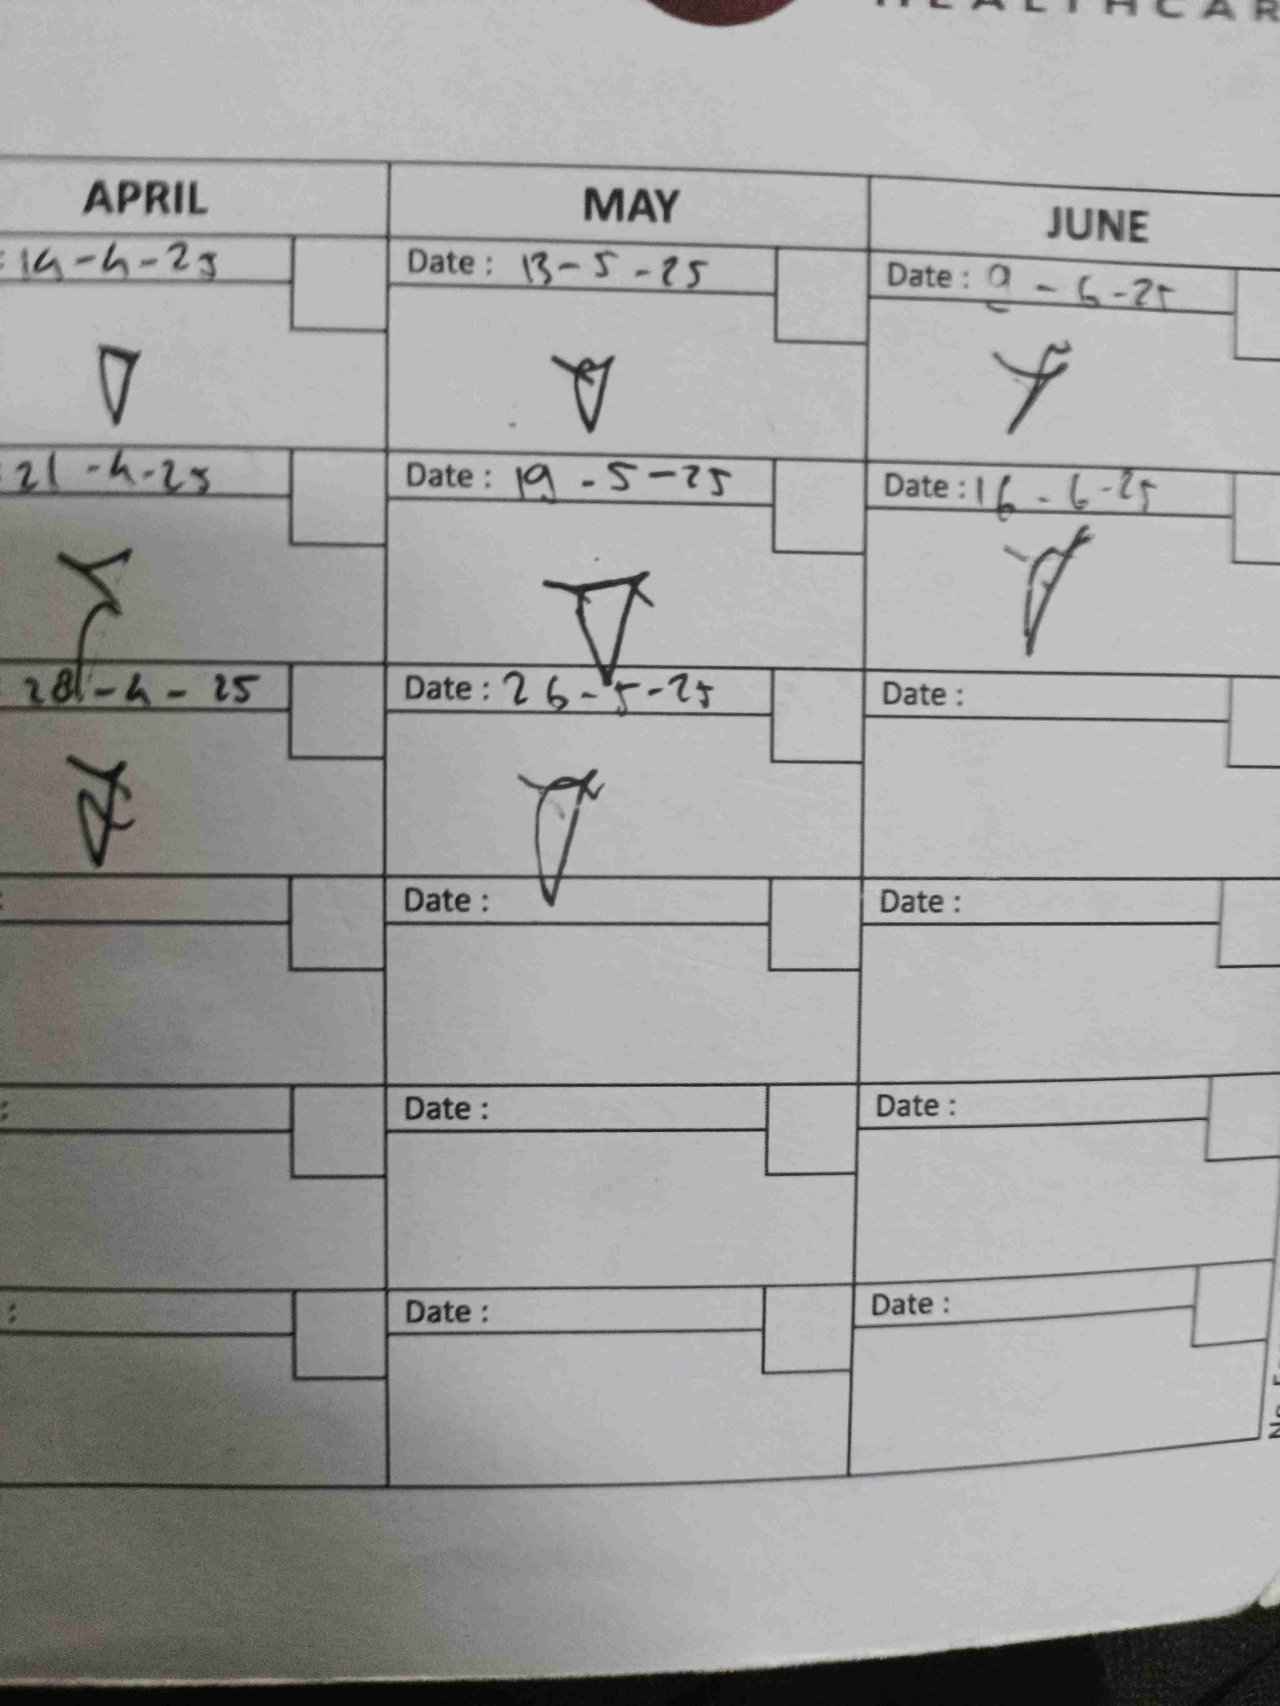 HEALTHCAR
APRIL MAY JUNE
: 14-4-25 Date : 13-5-25 Date : 9-6-25
: 21-4-25 Date : 19-5-25 Date : 16-6-25
28-4-25 Date : 26-5-25 Date :
: Date : Date :
: Date : Date :
: Date : Date :